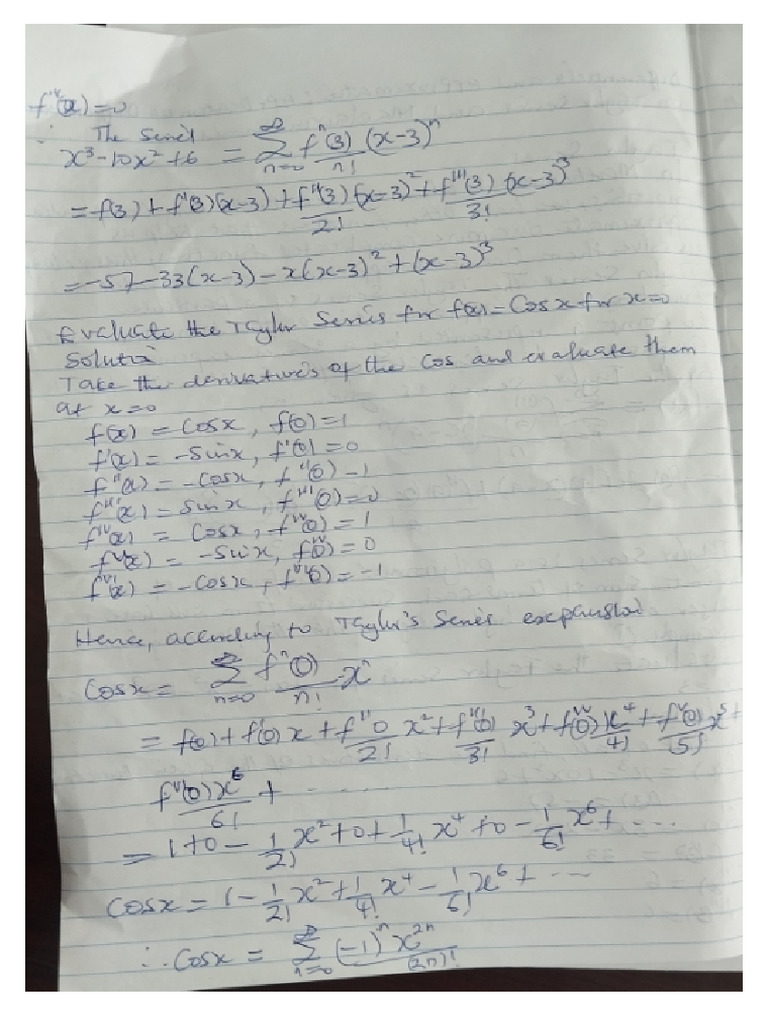 f''''(x) = 0
∴ The Series
x³ - 10x² + 6 = ∞ Σ n=0 fⁿ(3)/n! (x-3)ⁿ
= f(3) + f'(3)(x-3) + f''(3)/2! (x-3)² + f'''(3)/3! (x-3)³
= -57 - 33(x-3) - x(x-3)² + (x-3)³
Evaluate the Taylor Series for f(x) = Cos x for x = 0
Solution
Take the derivatives of the Cos and evaluate them
at x = 0
f(x) = Cosx, f(0) = 1
f'(x) = -Sinx, f'(0) = 0
f''(x) = -Cosx, f''(0) - 1
f'''(x) = Sinx, f'''(0) = 0
f^IV(x) = Cosx, f^IV(0) = 1
f^V(x) = -Sinx, f^V(0) = 0
f^VI(x) = -Cosx, f^VI(0) = -1
Hence, according to Taylor's Series expansion
Cosx = ∞ Σ n=0 fⁿ(0)/n! xⁿ
= f(0) + f'(0)x + f''0/2! x² + f'''(0)/3! x³ + f^IV(0) x⁴/4! + f^V(0)/5! x⁵ +
f^VI(0)x⁶/6! + ......
= 1 + 0 - 1/2! x² + 0 + 1/4! x⁴ + 0 - 1/6! x⁶ + ...
Cosx = 1 - 1/2! x² + 1/4! x⁴ - 1/6! x⁶ + ...
∴ Cosx = ∞ Σ n=0 (-1)ⁿ x²ⁿ/(2n)!